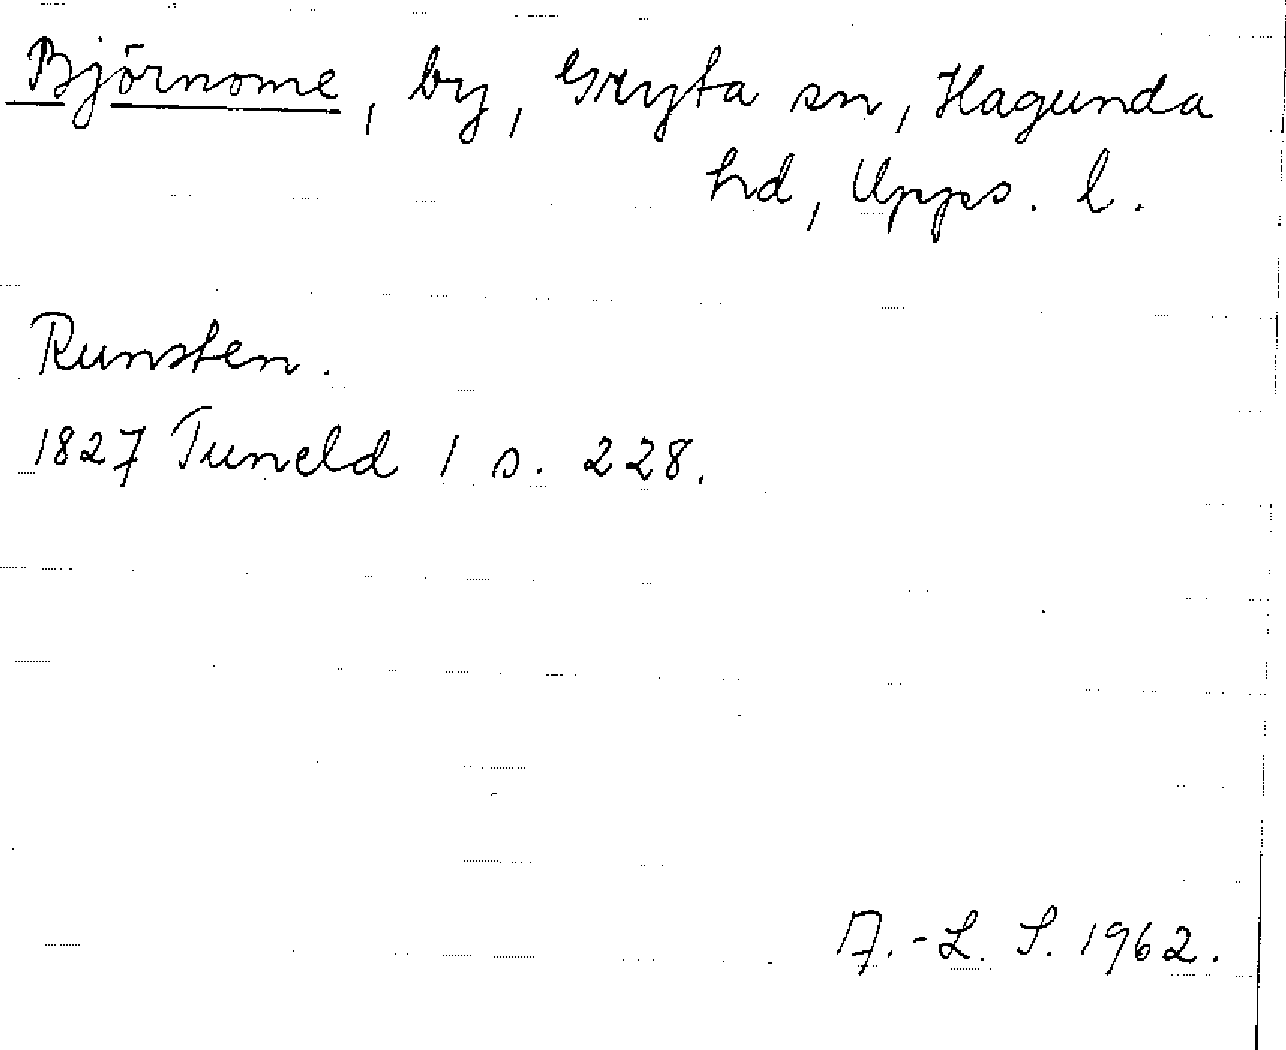 Björnome, by, Gryta sn, Hagunda
hd, Upps. l.
Runsten.
1827 Tuneld 1 s. 228.
A.-L. S. 1962.